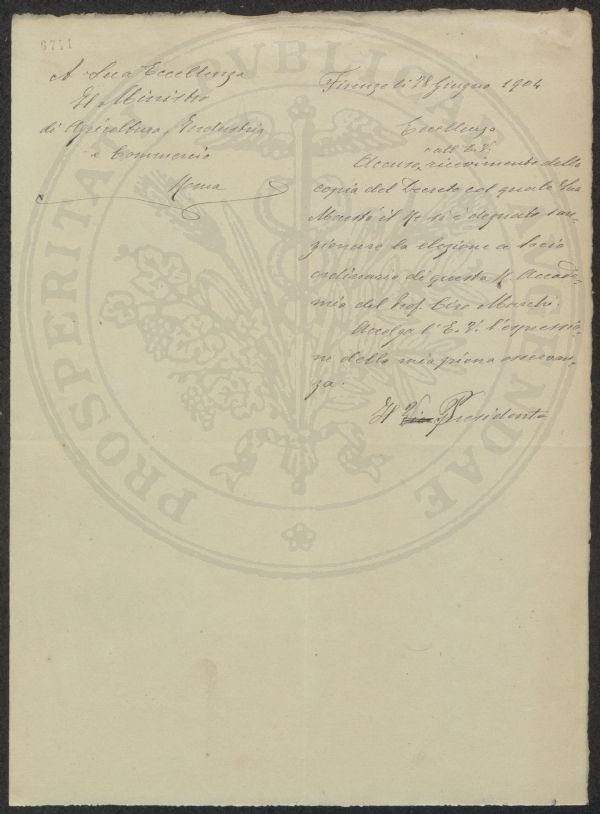 6711
A Sua Eccellenza
Il Ministro
di Agricoltura, Industria
e Commercio
Roma
Firenze li 28 Giugno 1904
Eccellenza
all' E. V.
Accuso ricevimento della
copia del Decreto col quale Sua
Maestà il Re si è degnato san-
zionare la elezione a socio
ordinario di questa R. Accade-
mia del Prof. Ciro Marchi.
Accolga l'E. V. l'espressio-
ne della mia piena osservan-
za.
Il Vice Presidente
PROSPERITATI PUBLICAE AUGENDAE